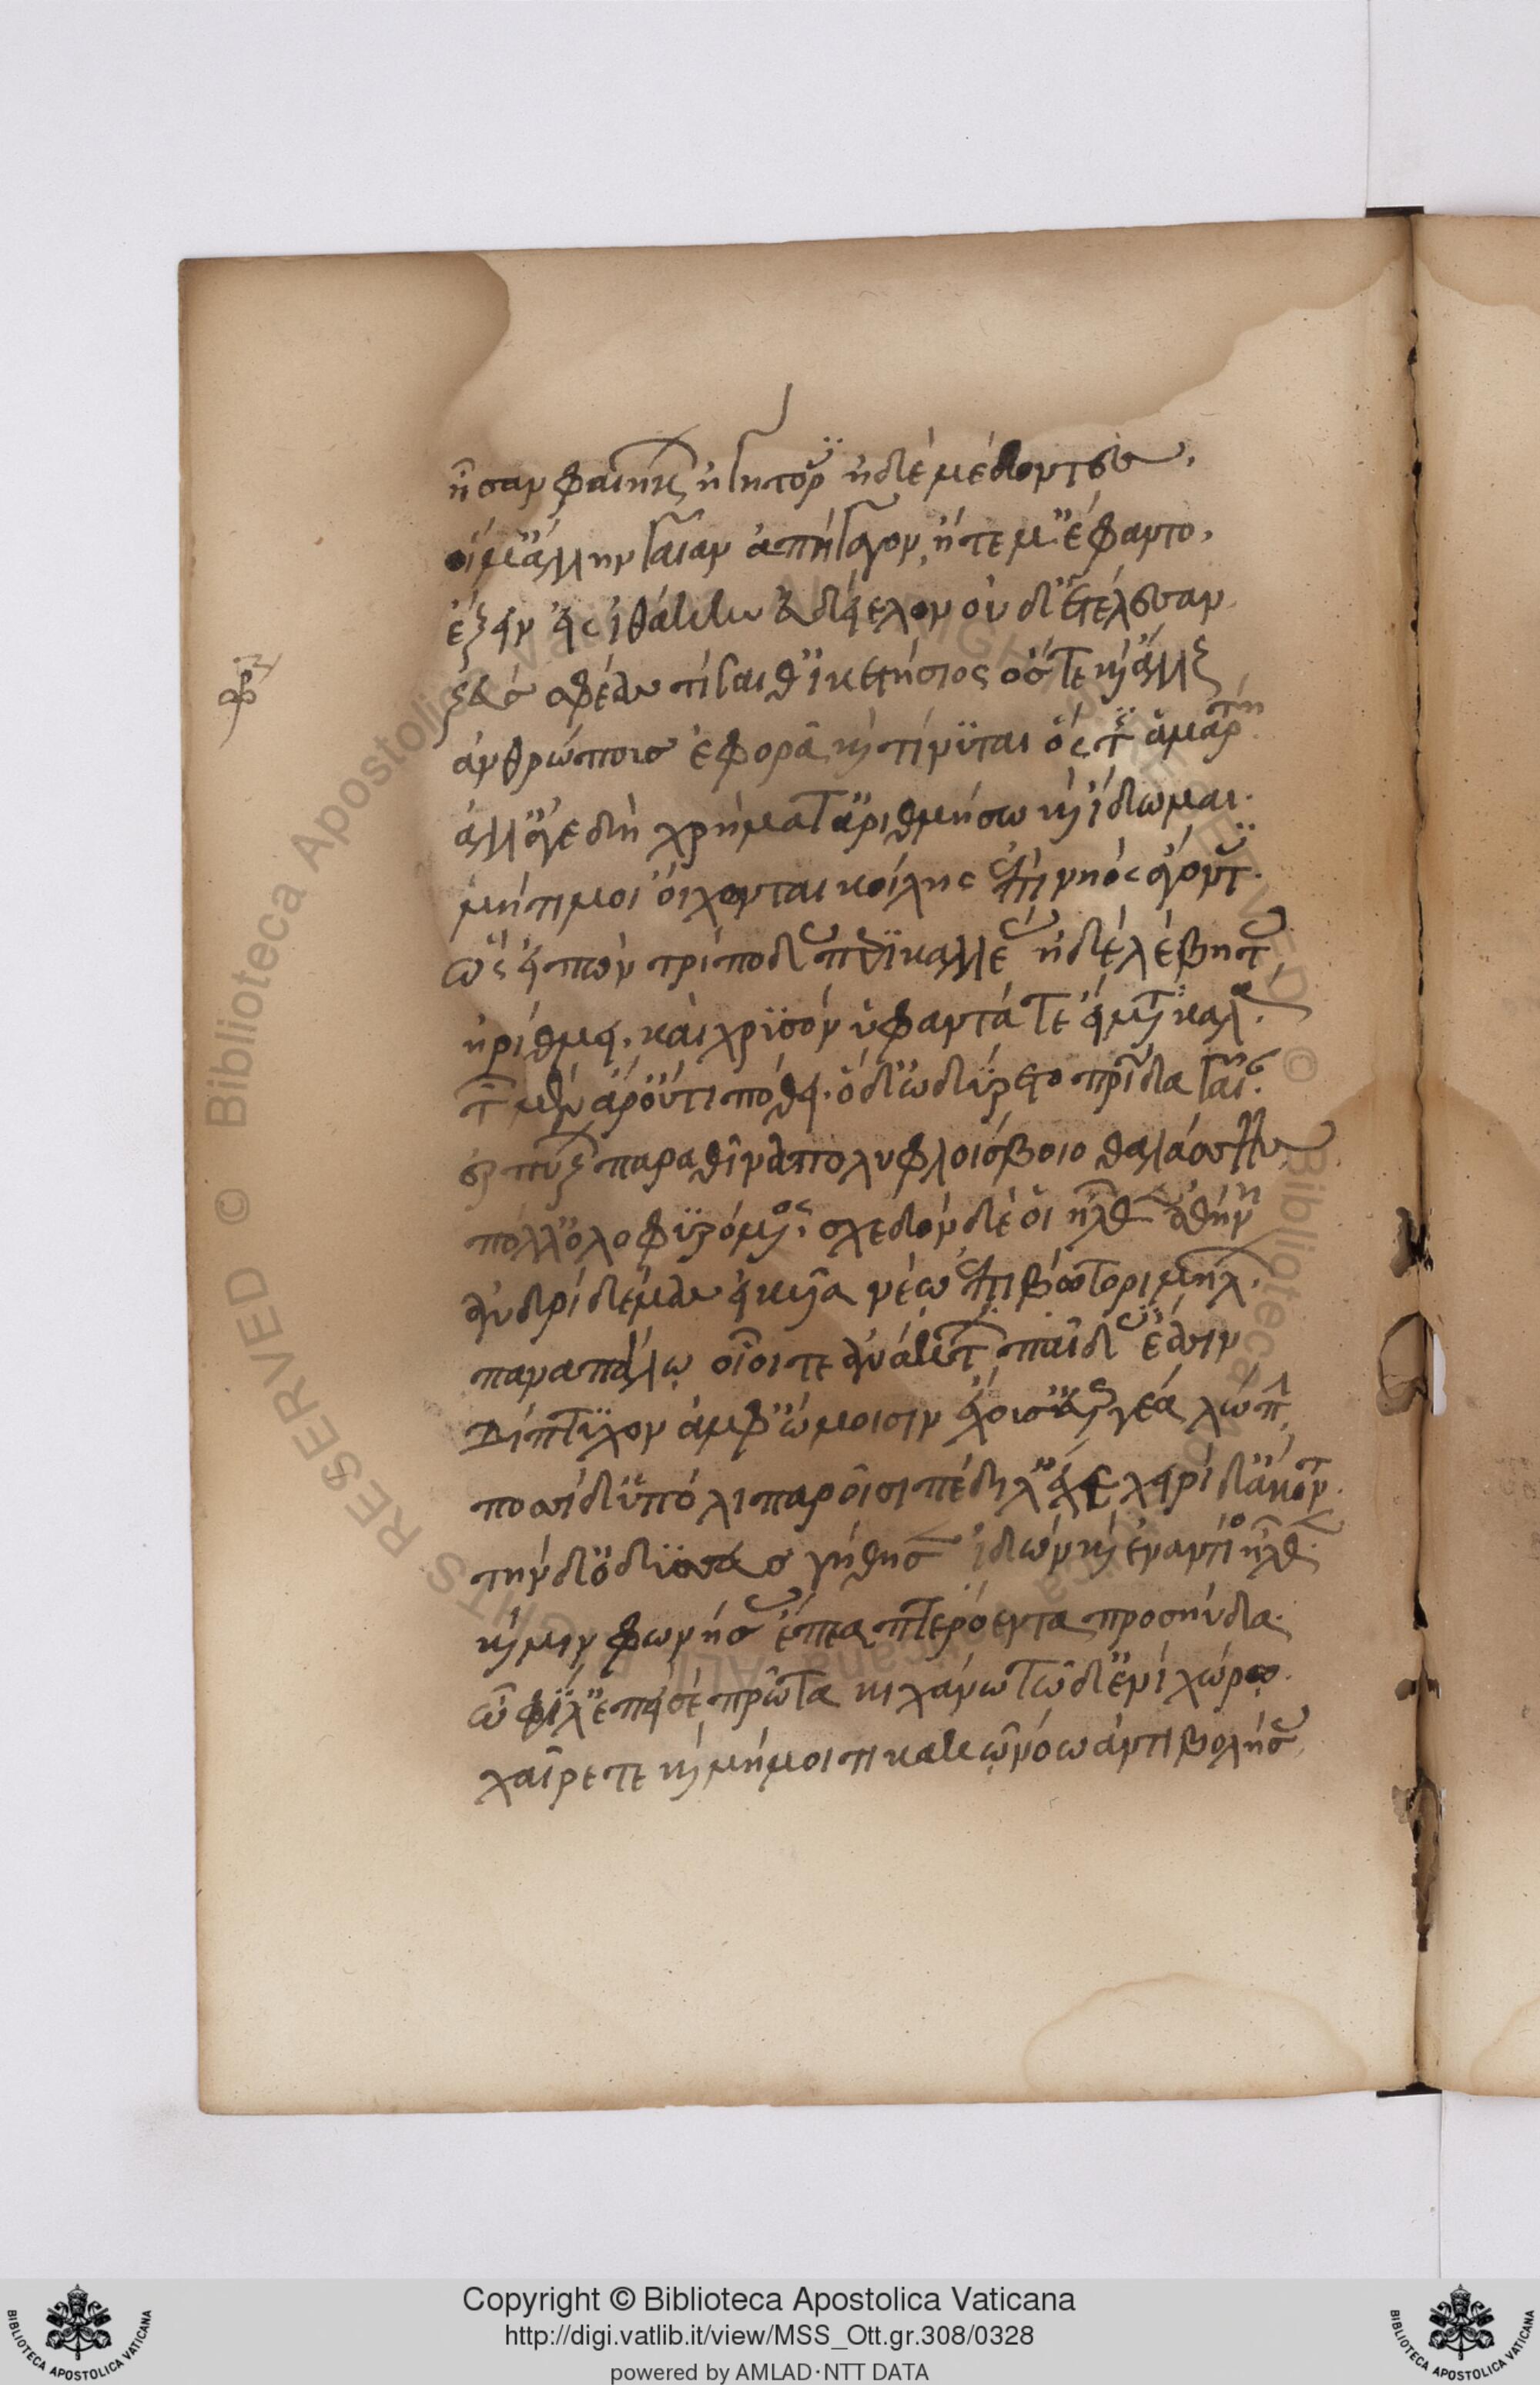 ἦσαν φαιήκων ἡγήτορες ἠδὲ μέδοντες,
οἵ μ' ἄλλην γαῖαν ἀπήγαγον, ἦ τέ μ' ἔφαντο,
ἄξειν εἰς ἰθάκην εὐδείελον οὐδ' ἐτέλεσσαν
ζεύς σφέας τίσαιθ' ἱκετήσιος ὅστε καὶ ἄλλους
ἀνθρώπους ἐφορᾷ καὶ τίνυται ὅς τις ἁμάρτῃ
ἀλλ' ἄγε δὴ χρήματ' ἀριθμήσω καὶ ἴδωμαι.
μή τί μοι οἴχονται κοίλης ἐπὶ νηὸς ἄγοντες.
ὣς εἰπὼν τρίποδας περικαλλέας ἠδὲ λέβητας
ἠρίθμει. καὶ χρυσὸν ὑφαντά τε εἵματα καλά.
τῶν μὲν ἄρ' οὔτι πόθει. ὁ δ' ὠδύρετο πατρίδα γαῖαν
ἑρπύζων παρὰ θῖνα πολυφλοίσβοιο θαλάσσης
πόλλ' ὀλοφυρόμενος. σχεδὸν δέ οἱ ἦλθεν ἀθήνη
ἀνδρὶ δέμας εἰκυῖα νέῳ ἐπιβώτορι μήλων.
παναπάλῳ οἷοί τε ἀνάκτων παῖδες ἔασιν
δίπτυχον ἀμφ' ὤμοισιν ἔχουσ' εὐεργέα λώπην
ποσσὶ δ' ὑπὸ λιπαροῖσι πέδιλ' ἔχε χειρὶ δ' ἄκοντα.
τὴν δ' ὀδυσσεὺς γήθησεν ἰδὼν καὶ ἐναντίος ἦλθε
καί μιν φωνήσας ἔπεα πτερόεντα προσηύδα.
ὦ φίλ' ἐπεί σε πρῶτα κιχάνω τῷδ' ἐνὶ χώρῳ.
χαῖρέ τε καὶ μή μοί τι κακῷ νόῳ ἀντιβολήσαις
Copyright © Biblioteca Apostolica Vaticana
http://digi.vatlib.it/view/MSS_Ott.gr.308/0328
powered by AMLAD·NTT DATA